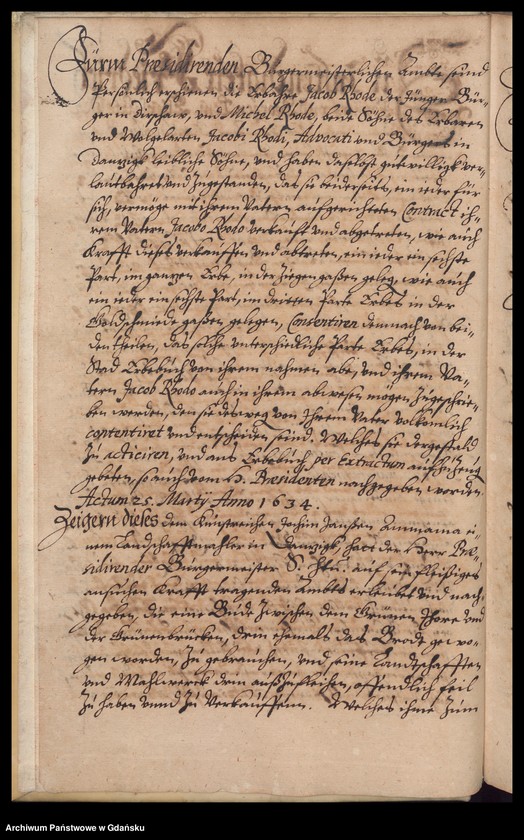 Fürm Presidirenden Bürgermeisterlichen Ambte seind
Persönlich erschienen die Erbahre Jacob Rhode der Jünger Bür-
ger in Dirschaw, und Michel Rhode, beide Söhne des Erbaren
und Wolgelarten Jacobi Rhodi, Advocati und Bürgers in
Dantzigk leibliche Söhne, und haben daselbst guttwilligk ver-
lautbahret und Zugestanden, das sie beiderseits, ein ieder für
sich, vermöge mit ihrem Vatern auffgerichteten Contract ih-
rem Vatern Jacobo Rhodo verkaufft und abgetreten, wie auch
Krafft dieses verkauffen und abtreten, ein ieder ein sechste
Part, im gantzen Erbe, in der Ziegengaßen geleg, wie auch
ein ieder ein sechste Part, im dritten Parte Erbes in der
Goldschmiede gaßen gelegen, Consentiren demnach von bei-
den theilen, das solche unterschiedliche Parte Erbes, in der
Stad Erbebuch von ihrem nahmen abe, und ihrem Va-
tern Jacob Rhodo auch in ihrem abwesen mögen Zugeschrie-
ben werden, den sie desweg von Ihrem Vater Volkomlich
contentiret und entscheiden seind. Welches sie dergestald
Zu acticiren, und ans Erbebuch per Extractum auffzuzeug
gebeten, so auch vom H. Presidenten nachgegeben worden.
Actum 25. Martij Anno 1634.
Zeigern dieses dem Kunstreichen Jochim Janßen Ammama ei-
nem Landschafftmahler in Dantzigk, hatt der Herr Præ-
sidirender Bürgermeister S. Htn. auff sein fleißiges
ansuchen Krafft tragenden Ambts erleubet und nach-
gegeben, die eine Bude Zwischen dem Grünen Thore und
der Grünenbrücken, drin ehemals das Brodt gewo-
gen worden, Zu gebrauchen, und seine Landschafften
und Mahlwerck drin außzufleihen, offendlich feil
Zu haben unnd Zu Verkauffenn. Welches ihme Zum
Archiwum Państwowe w Gdańsku